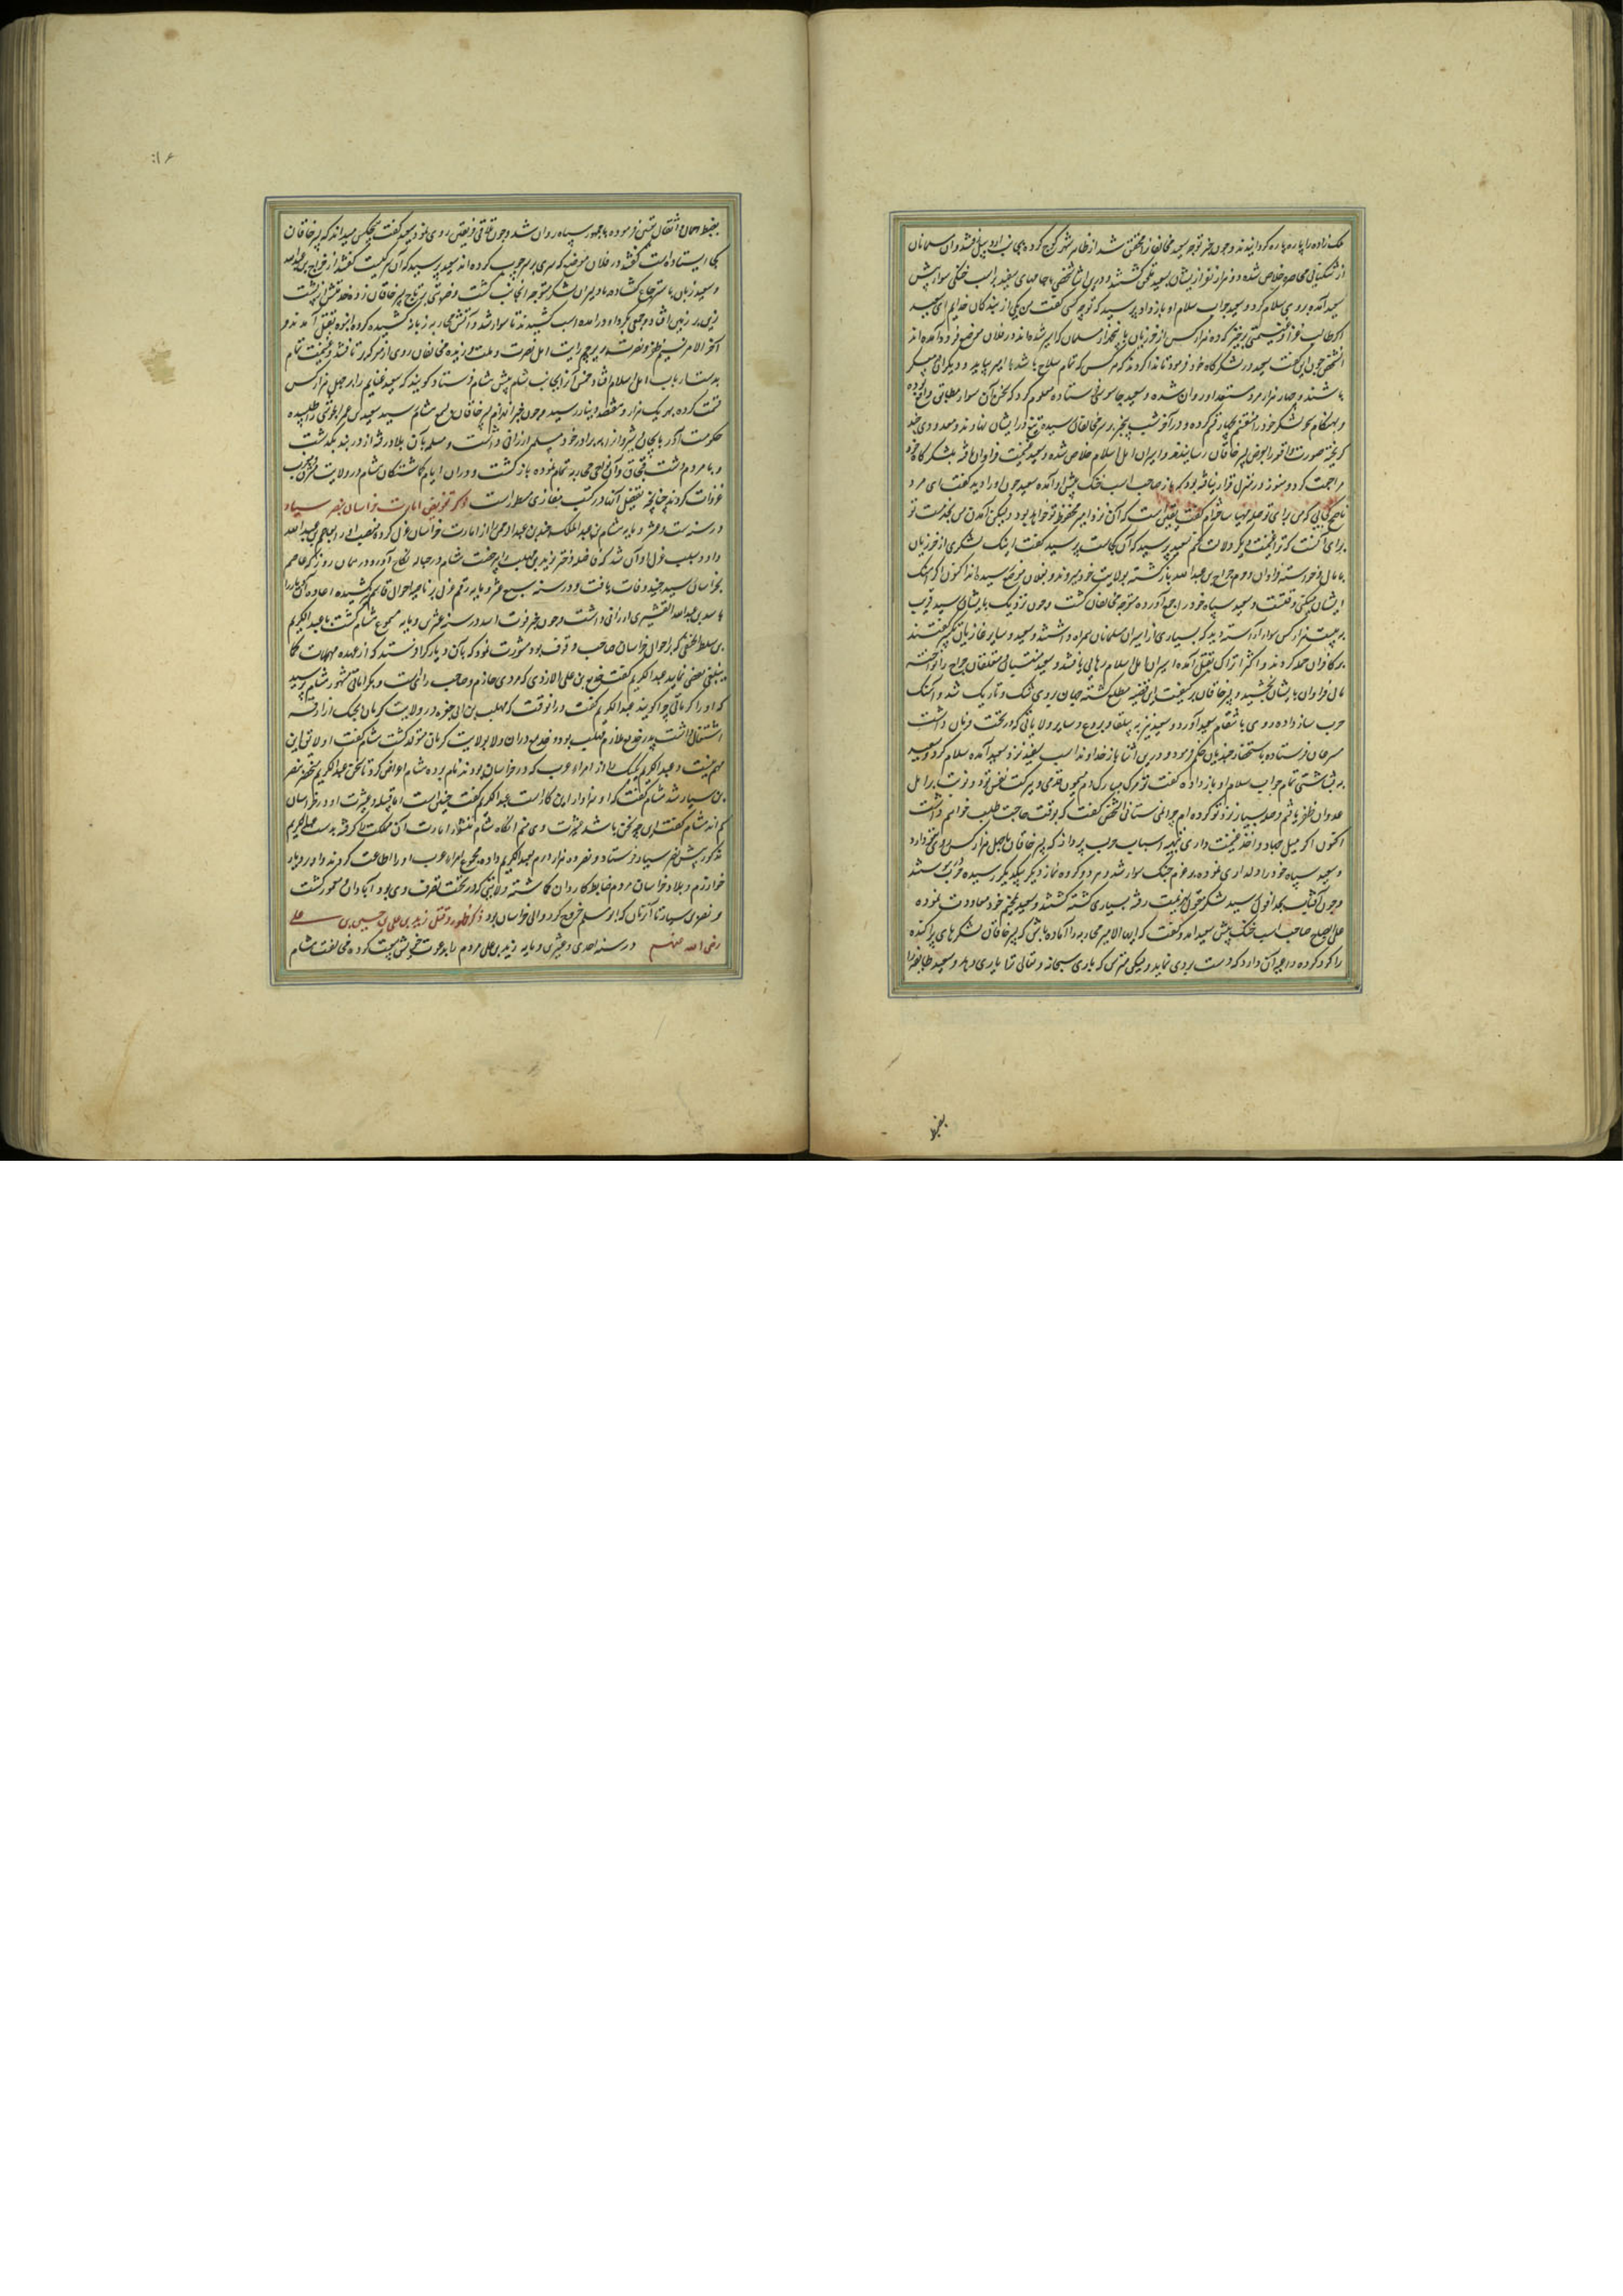 ملک زاده را پاره پاره گردانیدند و چون خبر توجه سعید مخالفان را محقق شد از ظاهر شهر کوچ کرده بجانب اردبیل رفتند و آن مسلمانان
از تنگنای محاصره خلاص شده دو هزار نفر از ایشان بسعید ملحق گشتند و درین اثنا شخصی با جامهای سفید بر اسب خنکی سوار پیش
سعید آمده بر وی سلام کرد و سعید جواب سلام او باز داد و پرسید که تو چه کسی گفت من یکی از بندگان خدایم ای سعید
اگر طالب غزا و غنیمتی برخیز که ده هزار کس از خزریان با پنج هزار مسلمان که اسیر شده اند در فلان موضع فرود آمده اند
سعید در لشکرگاه خود فرمود تا ندا کردند که هر کس که تمام سلاح باشد با امیر بیاید و دیگران در معسکر
باشند و چهار هزار مرد مستعد او روان شده و سعید جاسوسی فرستاده معلوم کرد که سخن آن سوار مطابق واقع بوده
و بهنگام سحر لشکر خود را منقسم بچهار قسم کرده و در آخر شب بیخبر بر سر مخالفان رسیده تیغ در ایشان نهادند و معدودی چند
گریخته صورت واقعه را بعرض پسر خاقان رسانیدند و اسیران اهل اسلام خلاص شده و سعید با غنیمت فراوان بلشکرگاه خود
مراجعت کرد و هنوز در منزل قرار نیافته بود که باز صاحب اسب خنک پیش او آمده سعید چون او را دید گفت ای مرد
ناصح کجایی که من برای تو صله مهیا ساخته ام گفت یقین است که آن نزد امیر محفوظ خواهد بود و لیکن آمدن من بخدمت تو
برای آنست که ترا بغنیمت دیگر دلالت کنم سعید پرسید که آن کجاست گفت اینک لشکری از خزریان
با مال و خواسته فراوان و حرم جراح بن عبد الله بازگشته بولایت خود میروند و بفلان موضع رسیده اند اکنون اگر آهنگ
ایشان میکنی وقتست و سعید سپاه خود را جمع آورده متوجه مخالفان گشت و چون نزدیک بایشان رسید قریب
به بیست هزار کس سواره آراسته دید که بسیاری از اسیران مسلمانان همراه داشتند و سعید و سایر غازیان تکبیر گفتند
بر کافران حمله کردند و اکثر اتراک بقتل آمده اسیران اهل اسلام رهایی یافتند و سعید متعلقان جراح را نواخته
مال فراوان بایشان بخشید و پسر خاقان بر کیفیت این قضیه مطلع گشته جهان بر وی تنگ و تاریک شد و آهنگ
حرب ساز داده روی بانتقام سعید آورد و سعید نیز به بیلقان و بردع و سایر ولایاتی که در تحت فرمان داشت
مسرعان فرستاده باستحضار جنود حکم فرمود و درین اثنا باز خداوند اسب سفید نزد سعید آمده سلام کرد و سعید
به بشاشتی تمام جواب سلام او باز داده گفت تو مرد مبارک دم میمون قدمی و ببرکت نفس تو دو نوبت بر اهل
عدوان ظفر یافتم و صله بسیار نزد تو کرده ام چرا نمی ستانی آن شخص گفت که بوقت حاجت طلب خواهم داشت
اکنون اگر میل جهاد و اخذ غنیمت داری بتهیه اسباب حرب پرداز که پسر خاقان با چهل هزار کس روی بتو دارد
و سعید سپاه خود را دلداری نموده بعزم جنگ سوار شد و هر دو گروه نماز دیگر بیکدیگر رسیده در هم پیوستند
و چون آفتاب بحد افول رسید لشکر بسیاری کشته گشتند و سعید بمخیم خود معاودت نموده
علی الصباح صاحب اسب خنک پیش سعید آمد و گفت که ایها الامیر محاربه را آماده باش که پسر خاقان لشکرهای پراکنده
را گرد کرده داعیه آن دارد که دست بردی نماید ولیکن مترس که باری سبحانه و تعالی ترا یاری دهد و سعید
بعزیمت
بضبط همان اثقال فرموده با جمهور سپاه روان شد و چون تلاقی فریقین روی نمود سعید گفت هیچکس میداند که پسر خاقان
کجا ایستاده است گفتند در فلان موضع که سری بر سر چوب کرده اند سعید پرسید که آن سر کیست گفتند از جراح بن عبد الله
و سعید زبان باسترجاع گشاده با دلیران لشکر متوجه آنجانب گشت و ضربتی بر تاج پسر خاقان زده از پشت
زین بر زمین افتاد و جمعی گرد او درآمده اسب کشیدند تا سوار شد و آتش محاربه زبانه کشیده گروه انبوه بقتل آمدند و
آخر الامر نسیم ظفر و نصرت بر پرچم رایت اهل نصرت و ملت وزیده مخالفان روی از معرکه بر تافتند و غنیمت تمام
بدست ارباب اهل اسلام افتاد و خمس آنرا بجانب شام پیش هشام فرستاد گویند که سعید غنایم را بر چهل هزار کس
قسمت کرده بهر یک هزار و هفتصد دینار رسید و چون خبر انهزام پسر خاقان بسمع هشام رسید سعید بن عمر الحرشی را طلبیده
حکومت آذربایجان و شروان را به برادر خود مسلمه ارزانی داشت و مسلمه بآن بلاد رفته از دربند بگذشت
و با مردم دشت قبچاق و آن نواحی محاربه تمام نموده بازگشت و در آن ایام گماشتگان هشام در ولایت مشرق و مغرب
غزوات کردند چنانچه تفصیل آنها در کتب مغازی مسطور است ذکر تفویض امارت خراسان بنصر سیار
در سنه ست و عشر و مایه هشام بن عبد الملک جنید بن عبد الرحمن را از امارت خراسان عزل کرده منصب او را بعاصم بن عبد الله
داد و سبب عزل او آن شد که فاضله دختر یزید بن مهلب را بی رخصت هشام در حباله نکاح آورده و در همان روز که عاصم
بخراسان رسید جنید وفات یافت و در سنه سبع عشر و مایه رقم عزل بر ناصیه احوال عاصم کشیده اعاده آن دیار را
باسد بن عبد الله القشیری ارزانی داشت و چون خبر فوت اسد در سنه عشرین و مایه مسموع هشام گشت با عبد الکریم
بن سلیط الحنفی که بر احوال خراسان صاحب وقوف بود مشورت نمود که بآن دیار کرا فرستد که از عهده مهمات آنجا
تفصی نماید عبد الکریم گفت جدیع بن علی الازدی که مردی حازم و صاحب رایست و بکرمانی مشهور هشام پرسید
که او را کرمانی چرا گویند عبد الکریم گفت در آن وقت که مهلب بن ابی صفره در ولایت کرمان بجنگ ازارقه
اشتغال داشت پدر جدیع ملازم مهلب بود و جدیع در آن ولا بولایت کرمان متولد گشت هشام گفت او لایق این
مهم نیست و عبد الکریم یک یک را از امراء عرب که در خراسان بودند نام برده هشام اعراض کرد تا سخن عبد الکریم منجر بنصر
بن سیار شد هشام گفت که او سزاوار این کار است عبد الکریم گفت چنین است اما قبیله و عشیرت او در خراسان
کم اند هشام گفت چون من باشم عشیرت وی منم آنگاه هشام منشور امارت آن مملکت را گرفته بدست عبد الکریم
مذکور پیش نصر سیار فرستاد و نصر ده هزار درم بعبد الکریم داده مجموع امراء عرب او را اطاعت کردند و او در دیار
خوارزم و بلاد خراسان مردم ضابط کاردان گماشته ولایتی که در تحت تصرف وی بود آبادان و معمور گشت
و نصر بن سیار تا آن زمان که ابو مسلم خروج کرد والی خراسان بود ذکر ظهور و قتل زید بن علی بن حسین بن علی
رضی الله عنهم در سنه احدی و عشرین و مایه زید بن علی مردم را بدعوت خویش بیعت کرده مخالفت هشام